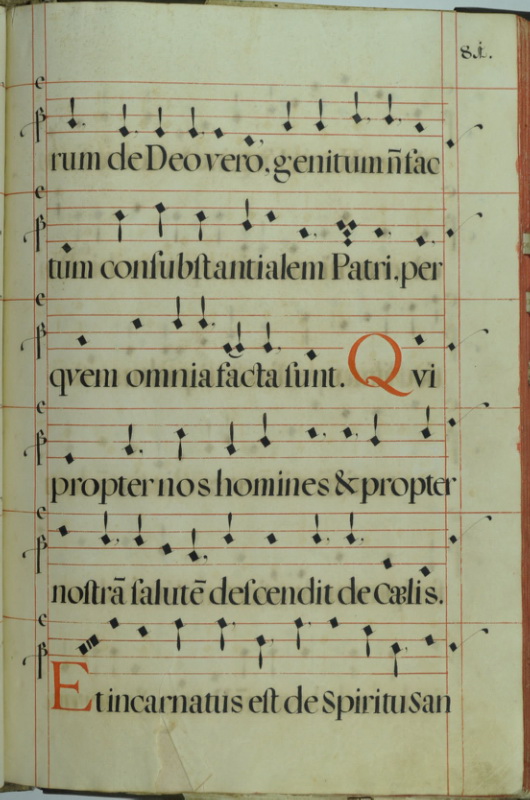 81.
rum de Deo vero, genitum ñ fac
tum conſubſtantialem Patri, per
qvem omnia facta ſunt. Qvi
propter nos homines & propter
noſtrã ſalutē deſcendit de cælis.
Et incarnatus eſt de Spiritu San